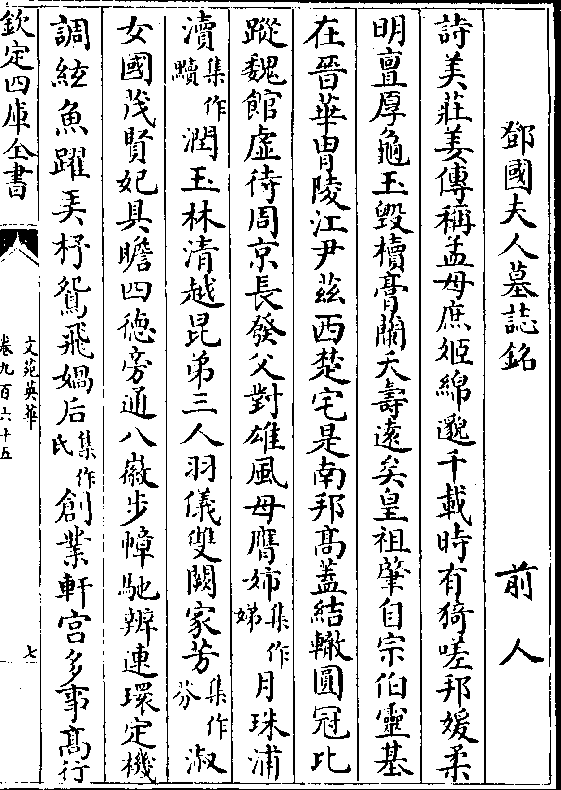 鄧國夫人墓誌銘 前人
詩美莊姜傳稱孟母庶姬綿邈千載時有猗嗟邦媛柔
明亶厚龜玉毀櫝膏蘭夭壽遠矣皇祖肇自宗伯靈基
在晉華胄陵江尹茲西楚宅是南邦高蓋結轍圓冠比
蹤魏館虛待周京長發父對雄風母膺姊集作娣月珠浦
瀆集作黷潤玉林清越昆弟三人羽儀雙闕家芳集作芬淑
女國茂賢妃具瞻四德旁通八徽步幛馳辨連環定機
調絃魚躍弄杼鴛飛媧后集作氏創業軒宮多事高行
欽定四庫全書
文苑英華
卷九百六十五
七